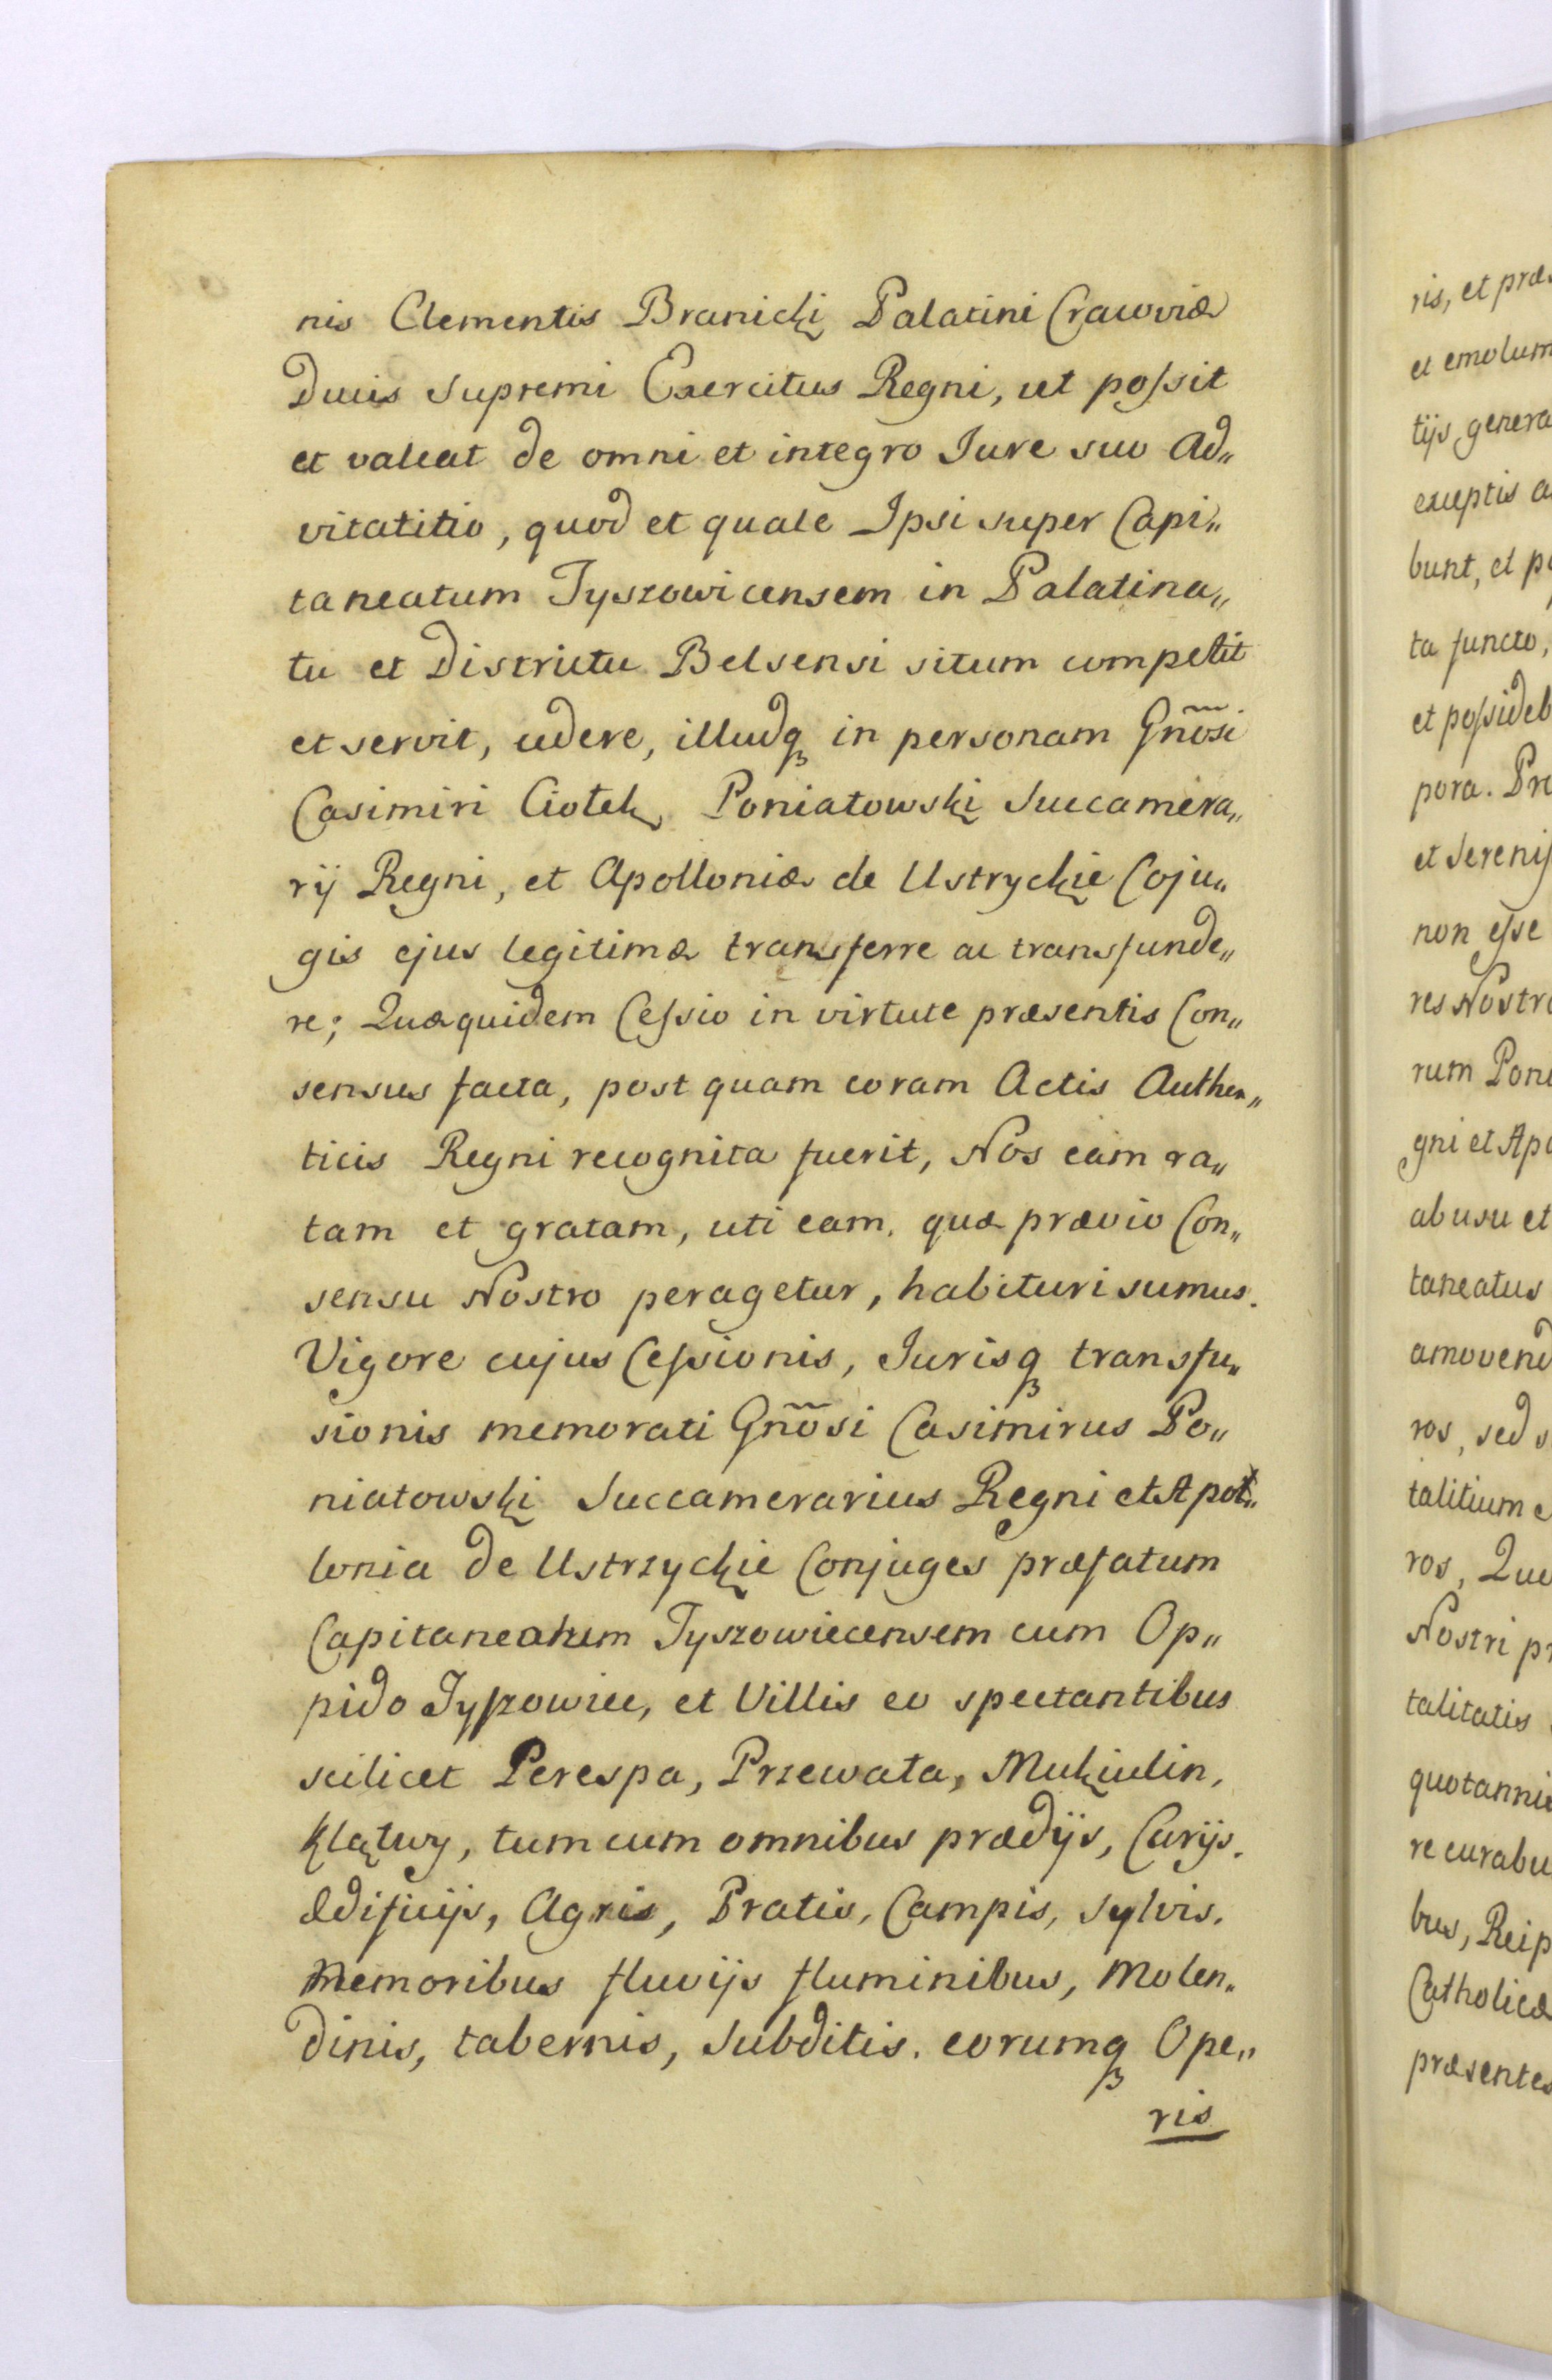 nis Clementis Branicki Palatini Cracoviæ
Ducis Supremi Exercitus Regni, ut possit
et valeat de omni et integro Jure suo Ad„
vitatitio, quod et quale Ipsi super Capi„
taneatum Tyszowicensem in Palatina„
tu et Districtu Belsensi situm competit
et servit, cedere, illudq₃ in personam Gñosi
Casimiri Ciołek Poniatowski Succamera„
rij Regni, et Apolloniæ de Ustryckie Coju„
gis ejus legitimæ transferre ac transfunde„
re; Quæquidem Cessio in virtute præsentis Con„
sensus facta, post quam coram Actis Authen„
ticis Regni recognita fuerit, Nos eam ra„
tam et gratam, uti eam, quæ prævio Con„
sensu Nostro peragetur, habituri sumus.
Vigore cujus Cessionis, Jurisq₃ transfu„
sionis memorati Gñosi Casimirus Po„
niatowski Succamerarius Regni et Apol„
lonia de Ustrzyckie Conjuges præfatum
Capitaneatum Tyszowiecensem cum Op„
pido Tyszowiec, et Villis eo spectantibus
scilicet Perespa, Przewała, Mukiulin,
Klątwy, tum cum omnibus prædijs, Curijs,
Ædificijs, Agris, Pratis, Campis, Sylvis,
Memoribus fluvijs fluminibus, Molen„
dinis, tabernis, Subditis, eorumq₃ Ope„
ris
ris, et præ
et emolum
tijs genera
exceptis a
bunt, et p
ta juncto,
et possideb
pora. Pro
et Serenis
non esse
res Nostro
rum Poni
gni et Apo
ab usu et
taneatus
amovend
ros, sed s
talitium
ros, Quo
Nostri pr
talitatis
quotannis
re curabu
bus, Reip
Catholicæ
præsentes